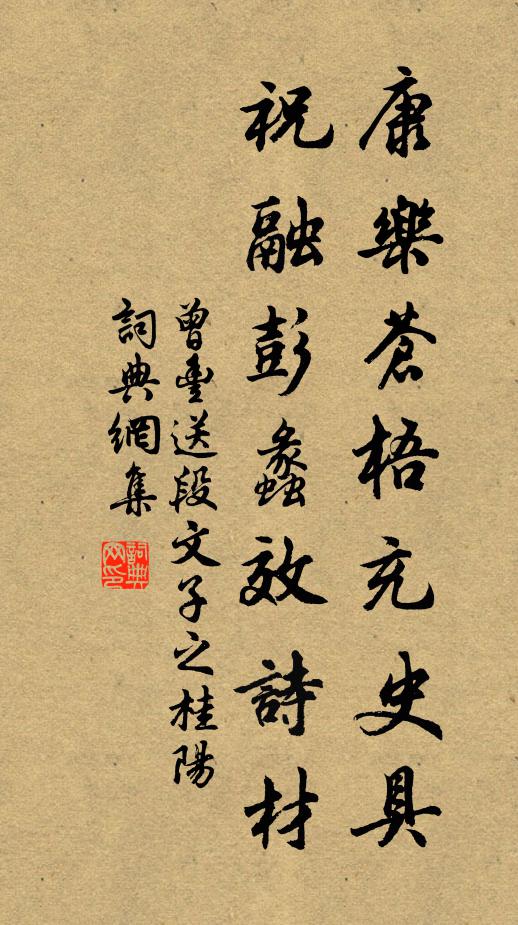 康樂蒼梧充史具
祝融彭蠡效詩材
曾豐送段文子之桂陽
詞典網集
詞典网印